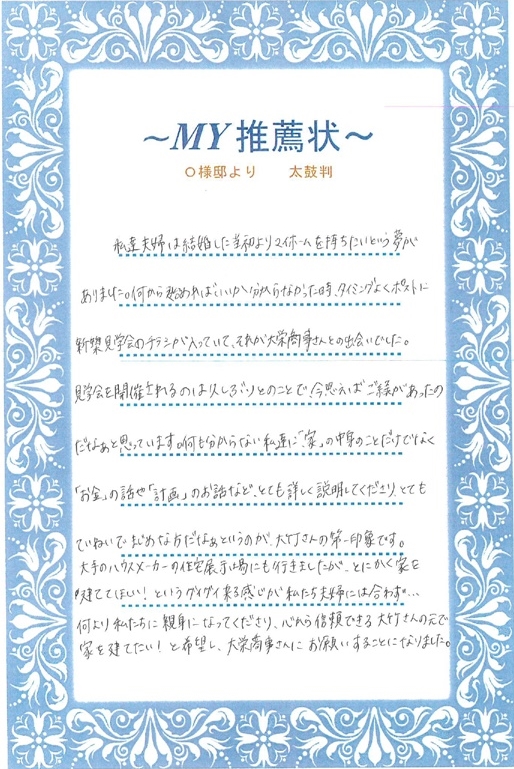 ～MY推薦状～
O様邸より　太鼓判
私達夫婦は結婚した当初よりマイホームを持ちたいという夢が
ありました。何から始めればいいか分からなかった時、タイミングよくポストに
新築見学会のチラシが入っていて、それが大栄商事さんとの出会いでした。
見学会を開催されるのは久しぶりとのことで、今思えばご縁があったの
だなぁと思っています。何も分からない私達に「家」の中身のことだけでなく
「お金」の話や「計画」のお話など、とても詳しく説明してくださり、とても
ていねいでまじめな方だなぁというのが、大竹さんの第一印象です。
大手のハウスメーカーの住宅展示場にも行きましたが、とにかく家を
建ててほしい！というグイグイ来る感じが私たち夫婦には合わず…
何より私たちに親身になってくださり、心から信頼できる大竹さんの元で
家を建てたい！と希望し、大栄商事さんにお願いすることになりました。